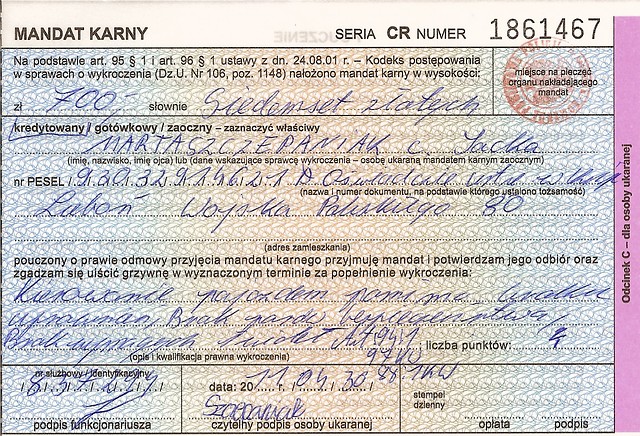 MANDAT KARNY SERIA CR NUMER 1861467
Na podstawie art. 95 § 1 i art. 96 § 1 ustawy z dn. 24.08.01 r. – Kodeks postępowania
w sprawach o wykroczenia (Dz.U. Nr 106, poz. 1148) nałożono mandat karny w wysokości:
zł 700 słownie Siedemset złotych
miejsce na pieczęć
organu nakładającego
mandat
kredytowany / gotówkowy / zaoczny – zaznaczyć właściwy
MARTA SZCZEPANIAK c. Jacka
(imię, nazwisko, imię ojca) lub (dane wskazujące sprawcę wykroczenia – osobę ukaraną mandatem karnym zaocznym)
nr PESEL 93032914621
(nazwa i numer dokumentu, na podstawie którego ustalono tożsamość)
Luboń Wojska Polskiego 80
(adres zamieszkania)
pouczony o prawie odmowy przyjęcia mandatu karnego przyjmuję mandat i potwierdzam jego odbiór oraz
zgadzam się uiścić grzywnę w wyznaczonym terminie za popełnienie wykroczenia:
Kierowanie pojazdem pomimo braku
uprawnień, Brak pasów bezpieczeństwa
Brak Art 94/1
97 KW
(opis i kwalifikacja prawna wykroczenia) liczba punktów: 4
nr służbowy / identyfikacyjny
data: 20 11.04.30
stempel
dzienny
podpis funkcjonariusza
Szczepaniak
czytelny podpis osoby ukaranej
opłata podpis
Odcinek C – dla osoby ukaranej